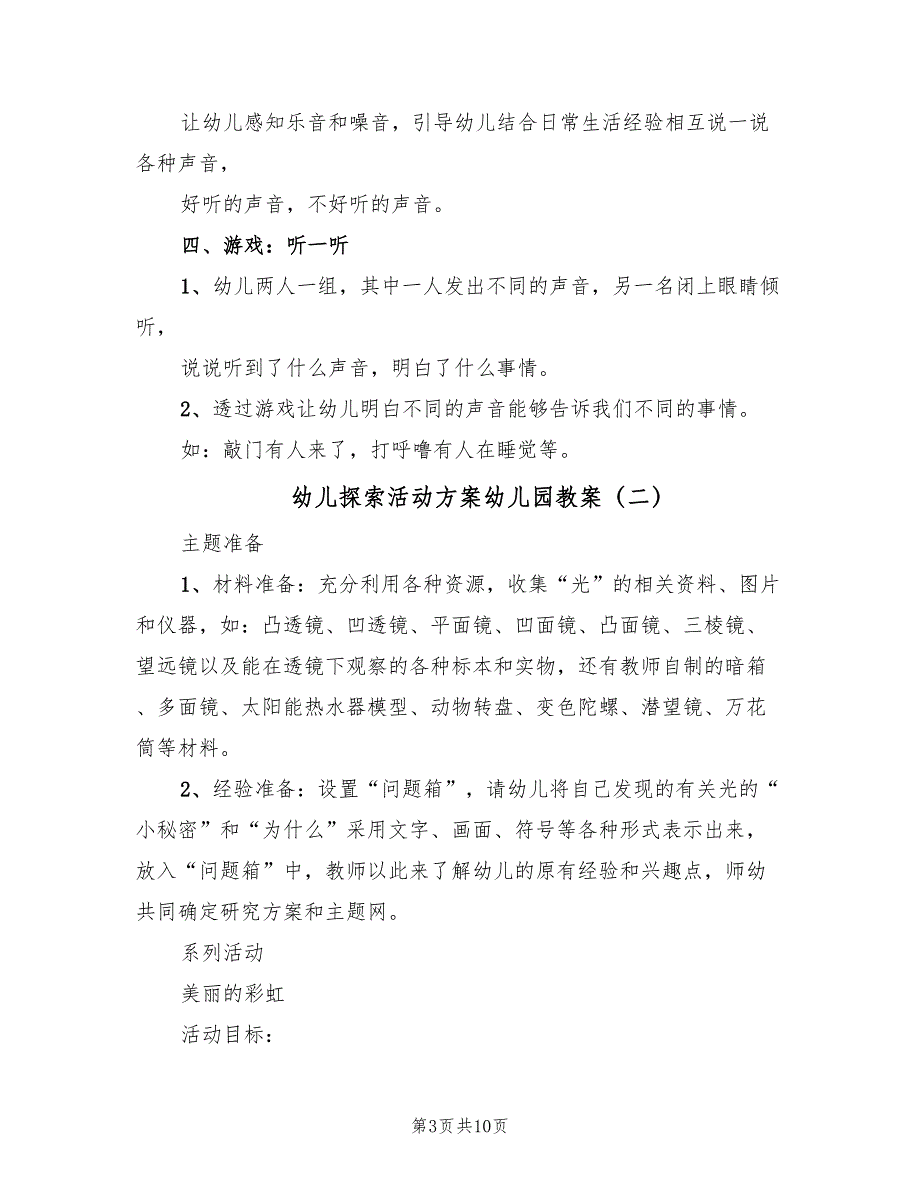 让幼儿感知乐音和噪音，引导幼儿结合日常生活经验相互说一说
各种声音，
好听的声音，不好听的声音。
四、游戏：听一听
1、幼儿两人一组，其中一人发出不同的声音，另一名闭上眼睛倾
听，
说说听到了什么声音，明白了什么事情。
2、透过游戏让幼儿明白不同的声音能够告诉我们不同的事情。
如：敲门有人来了，打呼噜有人在睡觉等。
幼儿探索活动方案幼儿园教案（二）
主题准备
1、材料准备：充分利用各种资源，收集“光”的相关资料、图片
和仪器，如：凸透镜、凹透镜、平面镜、凹面镜、凸面镜、三棱镜、
望远镜以及能在透镜下观察的各种标本和实物，还有教师自制的暗箱
、多面镜、太阳能热水器模型、动物转盘、变色陀螺、潜望镜、万花
筒等材料。
2、经验准备：设置“问题箱”，请幼儿将自己发现的有关光的“
小秘密”和“为什么”采用文字、画面、符号等各种形式表示出来，
放入“问题箱”中，教师以此来了解幼儿的原有经验和兴趣点，师幼
共同确定研究方案和主题网。
系列活动
美丽的彩虹
活动目标：
第3页共10页